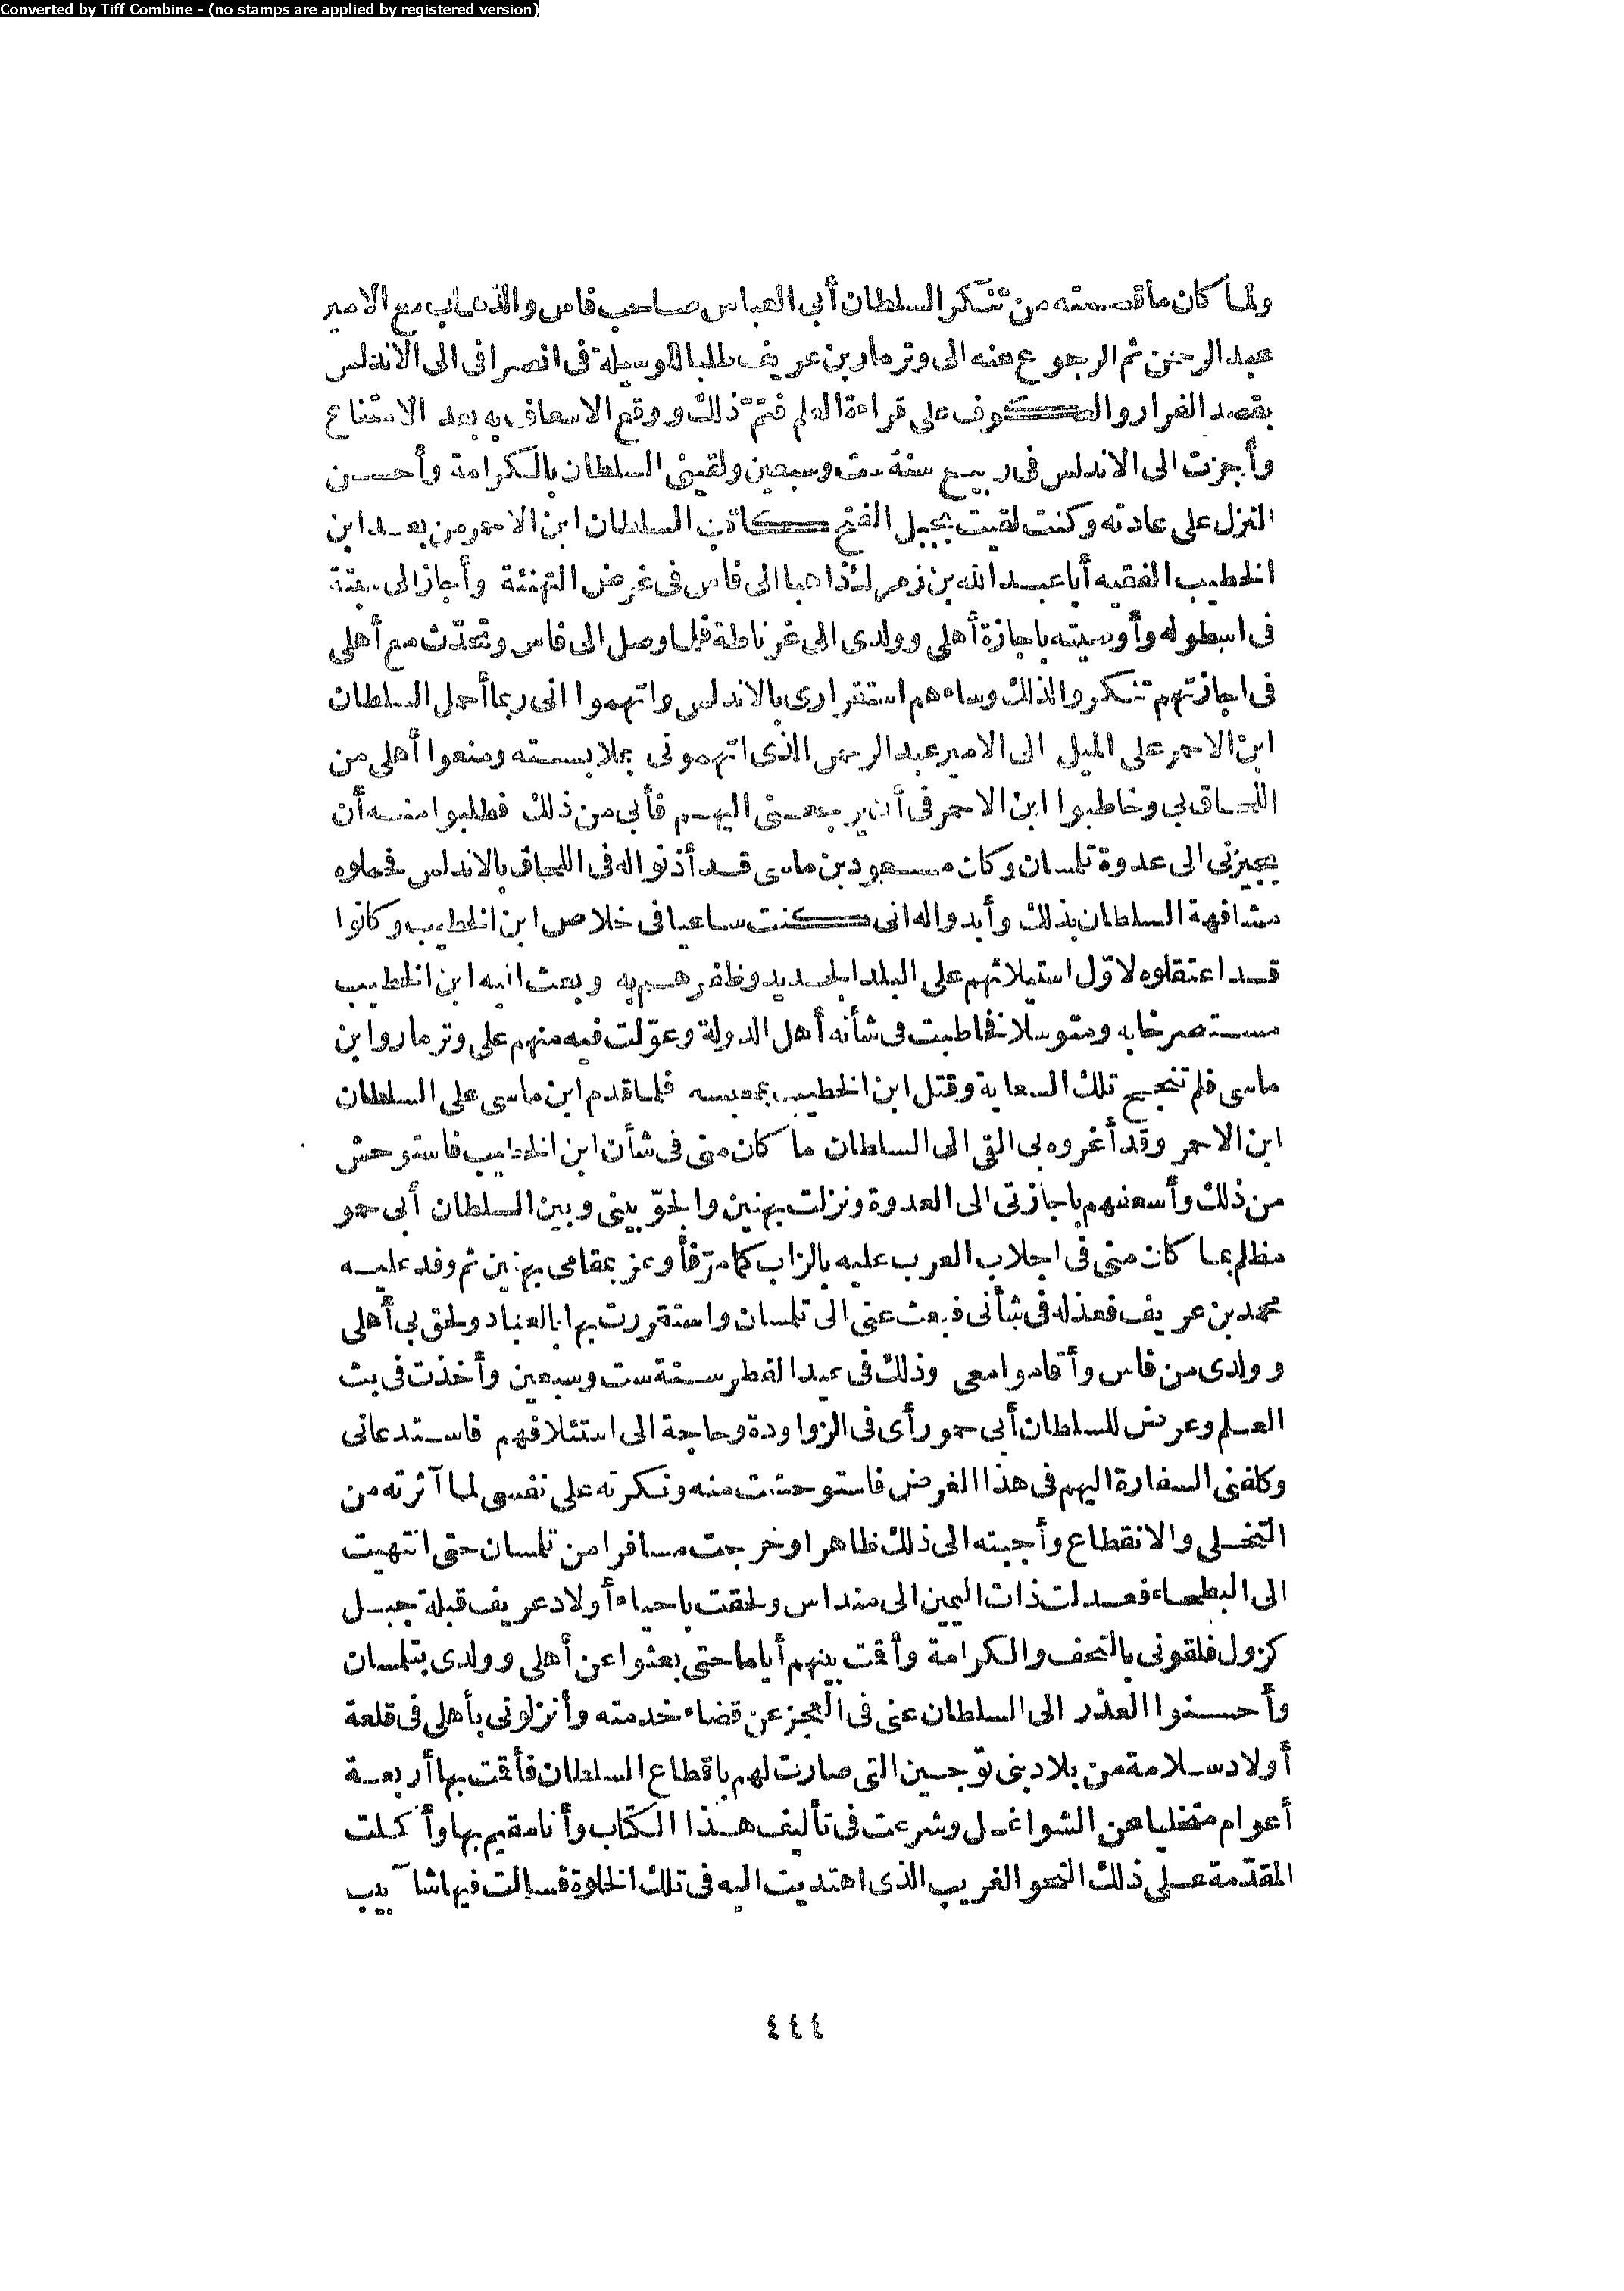 Converted by Tiff Combine - (no stamps are applied by registered version)
ولما كان ما قصصته من تنكر السلطان أبى العباس صاحب فاس والذهاب مع الامير
عبد الرحمن ثم الرجوع عنه الى وترمار بن عريف طلبا للوسيلة فى انصرافى الى الاندلس
بقصد الفرار والعكوف على قراءة العلم فتمّ ذلك ووقع الاسعاف به بعد الامتناع
وأجزت الى الاندلس فى ربيع سنة ست وسبعين ولقينى السلطان بالكرامة وأحسن
النزل على عادته وكنت لقيت بجبل الفتح كاتب السلطان ابن الاحمر من بعد ابن
الخطيب الفقيه أبا عبد الله بن زمرك ذاهبا الى فاس فى غرض التهنئة وأجاز الى سبتة
فى اسطوله وأوصيته باجازة أهلى وولدى الى غرناطة فلما وصل الى فاس وتحدّث مع أهلى
فى اجازتهم تنكروا لذلك وساءهم استقرارى بالاندلس واتهموا انى ربما أحمل السلطان
ابن الاحمر على الميل الى الامير عبد الرحمن الذى اتهمونى بملابسته ومنعوا أهلى من
اللحاق بى وخاطبوا ابن الاحمر فى أن يرجعنى اليهم فأبى من ذلك فطلبوا منه أن
يجيزنى الى عدوة تلمسان وكان مسعود بن ماسى قد أذنوا له فى اللحاق بالاندلس فحملوه
مشافهة السلطان بذلك وأبدوا له انى كنت ساعيا فى خلاص ابن الخطيب وكانوا
قد اعتقلوه لاوّل استيلائهم على البلد الجديد وظفرهم به وبعث اليه ابن الخطيب
مستصرخا به ومتوسلا فخاطبت فى شأنه أهل الدولة وعوّلت فيه منهم على وترمار وابن
ماسى فلم تنجح تلك السعاية وقتل ابن الخطيب بمحبسه فلما قدم ابن ماسى على السلطان
ابن الاحمر وقد أغروه بى القى الى السلطان ما كان منى فى شأن ابن الخطيب فاستوحش
من ذلك وأسعفهم باجازتى الى العدوة ونزلت بهنين والجوّ بينى وبين السلطان أبى حمو
مظلم بما كان منى فى اجلاب العرب عليه بالزاب كما مرّ فأوعز بمقامى بهنين ثم وفد عليه
محمد بن عريف فعذله فى شأنى فبعث عنى الى تلمسان واستقررت بها بالعباد ولحق بى أهلى
وولدى من فاس وأقاموا معى وذلك فى عيد الفطر سنة ست وسبعين وأخذت فى بث
العلم وعرض للسلطان أبى حمو رأى فى الزواودة وحاجة الى استئلافهم فاستدعانى
وكلفنى السفارة اليهم فى هذا الغرض فاستوحشت منه ونكرته على نفسى لما آثرته من
التخلى والانقطاع وأجبته الى ذلك ظاهرا وخرجت مسافرا من تلمسان حتى انتهيت
الى البطحاء فعدلت ذات اليمين الى منداس ولحقت باحياء أولاد عريف قبلة جبل
كزول فلقونى بالتحف والكرامة وأقمت بينهم أياما حتى بعثوا عن أهلى وولدى بتلمسان
وأحسنوا العذر الى السلطان عنى فى العجز عن قضاء خدمته وأنزلونى بأهلى فى قلعة
أولاد سلامة من بلاد بنى توجين التى صارت لهم باقطاع السلطان فأقمت بها أربعة
أعوام متخليا عن الشواغل وشرعت فى تأليف هذا الكتاب وأنا مقيم بها وأكملت
المقدّمة على ذلك النحو الغريب الذى اهتديت اليه فى تلك الخلوة فسالت فيها شآبيب
٤٤٤